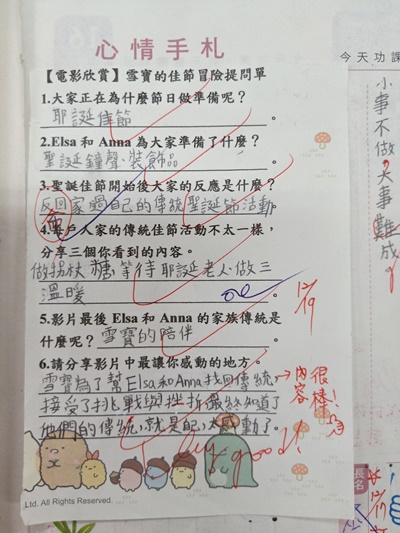 心情手札
今天功課
【電影欣賞】雪寶的佳節冒險提問單
1.大家正在為什麼節日做準備呢？
耶誕佳節。
2.Elsa 和 Anna 為大家準備了什麼？
聖誕鐘聲、裝飾品。
3.聖誕佳節開始後大家的反應是什麼？
反回家過自己的傳統聖誕節活動。
4.每戶人家的傳統佳節活動不太一樣，
分享三個你看到的內容。
做拐杖糖、等待耶誕老人、做三
溫暖。
12/19
5.影片最後 Elsa 和 Anna 的家族傳統是
什麼呢？雪寶的陪伴。
6.請分享影片中最讓你感動的地方。
雪寶為了幫Elsa和Anna找回傳統，
接受了挑戰與挫折最終知道了
他們的傳統，就是配，太感動了。
內容很棒！
Very good!
Ltd. All Rights Reserved.
小事不做，大事難成
12/19